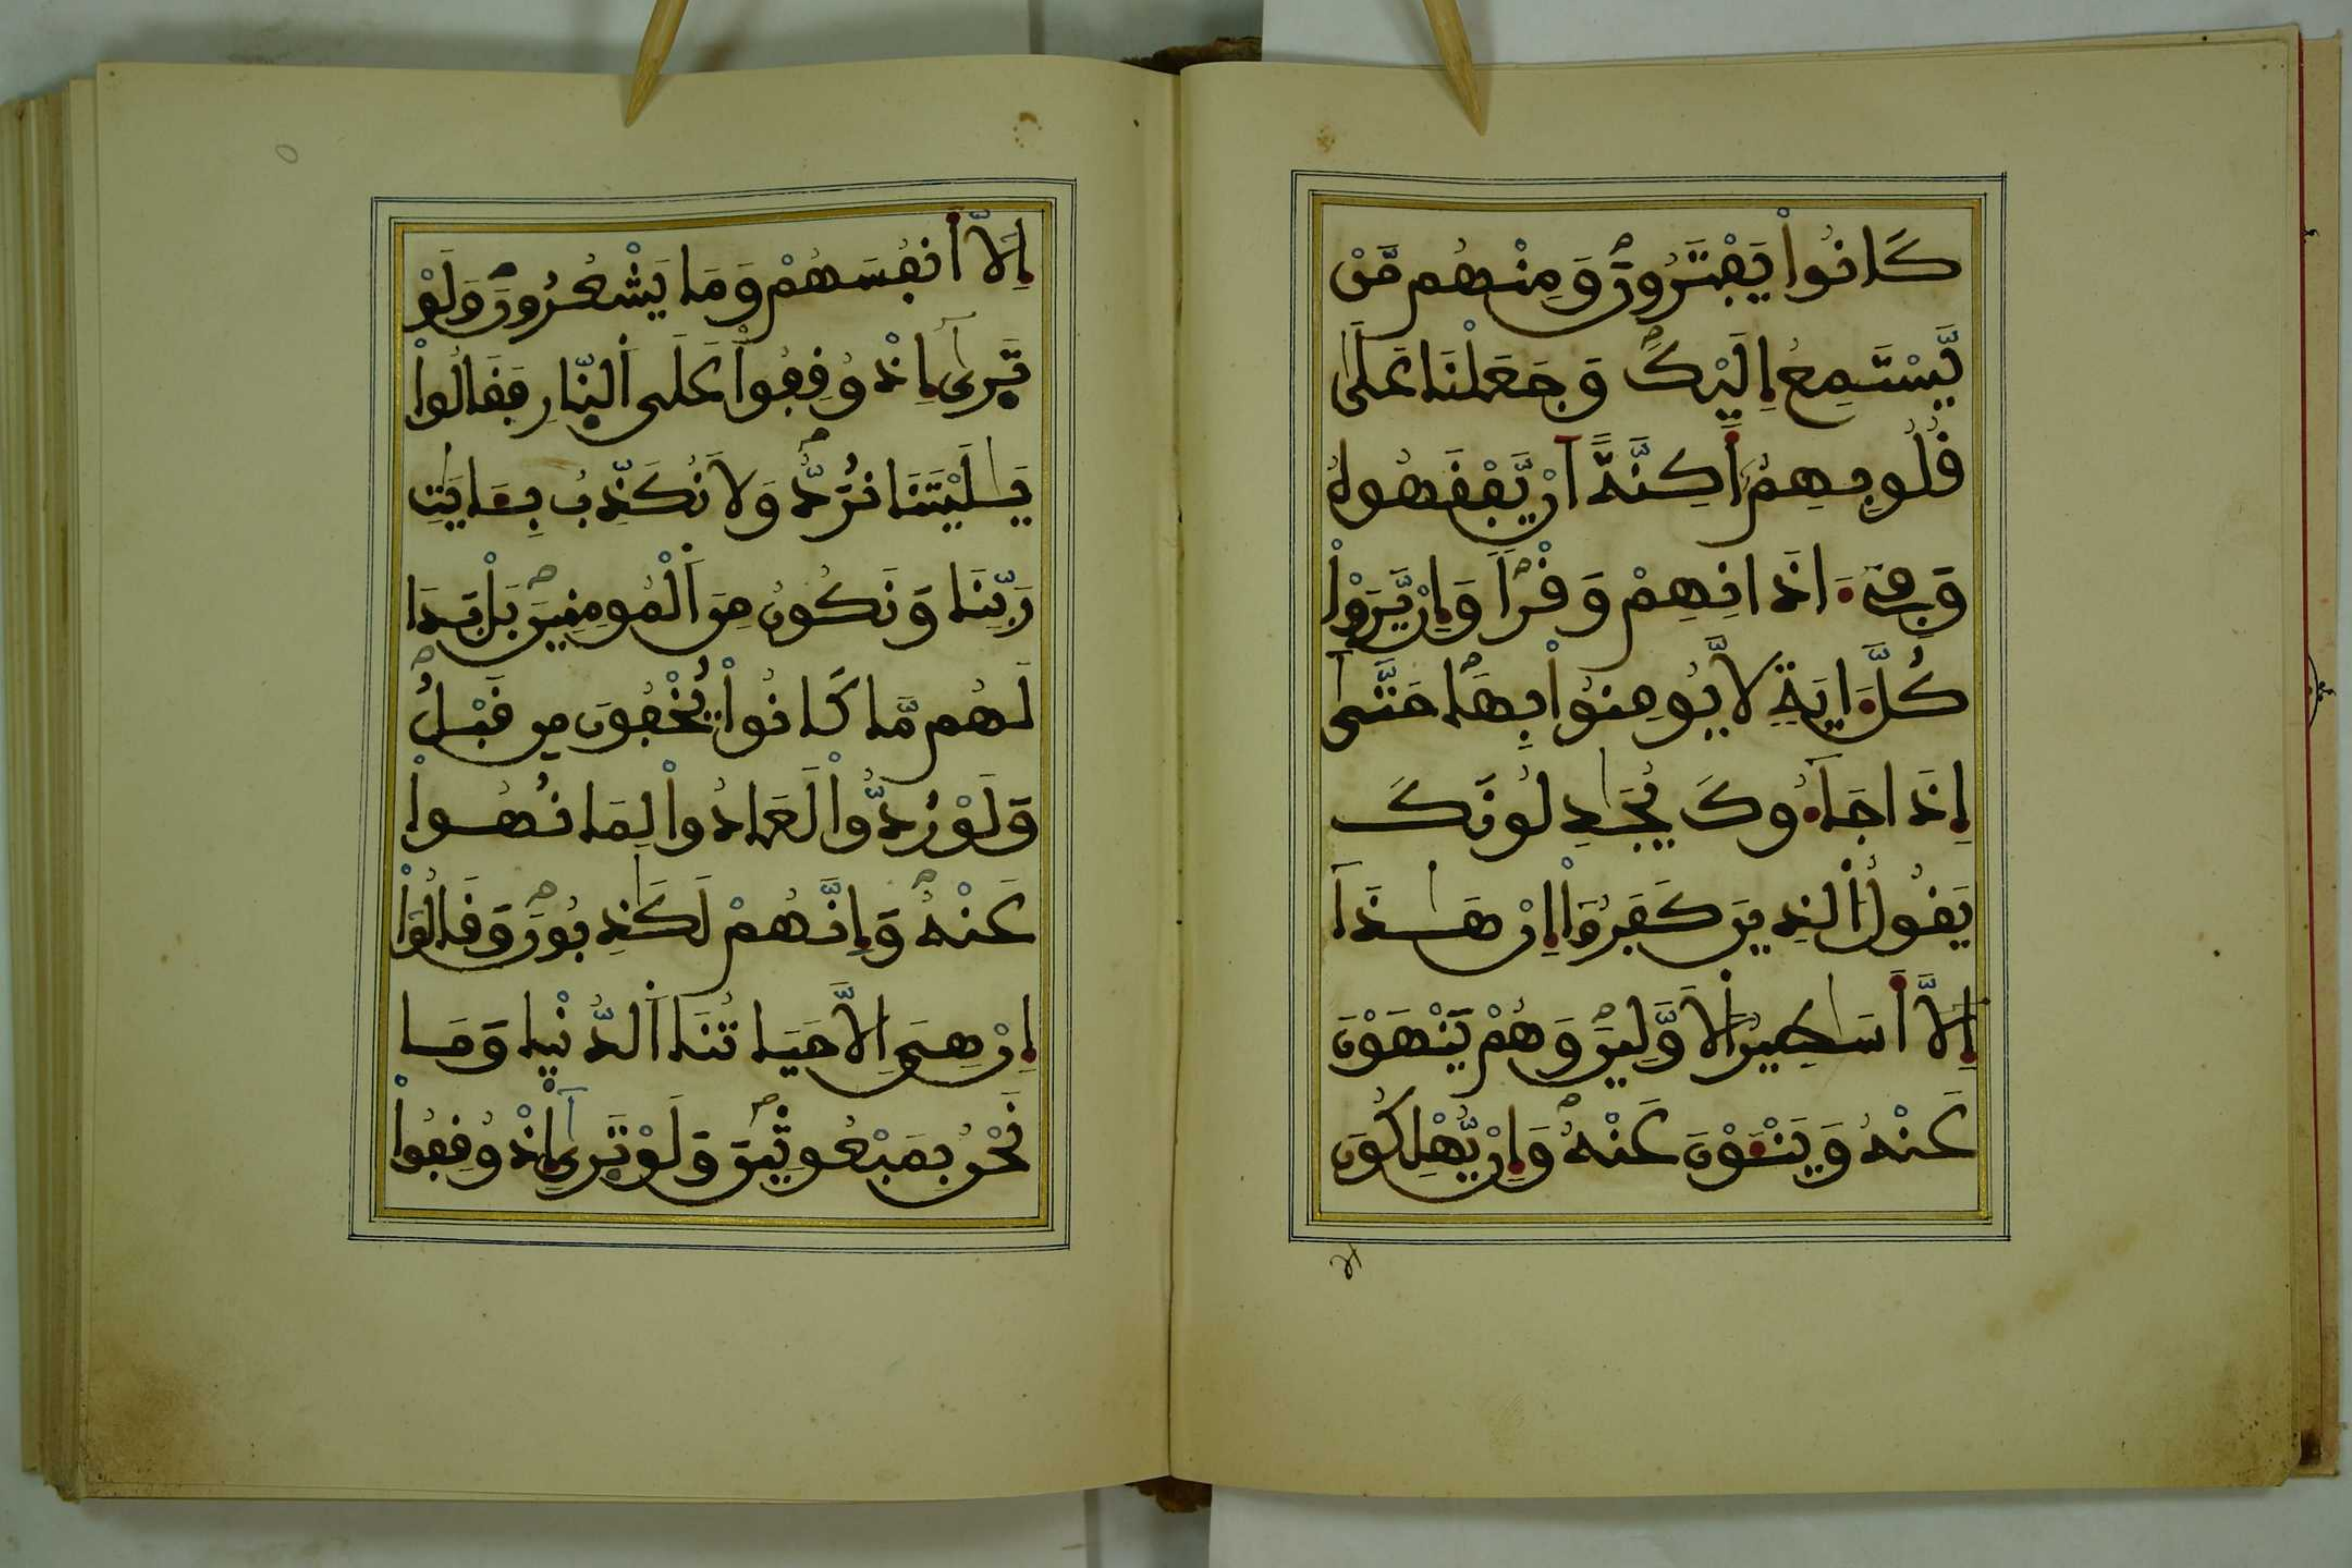 كَانُواْ يَفْتَرُونَ وَمِنْهُم مَّنْ
يَّسْتَمِعُ إِلَيْكَ وَجَعَلْنَا عَلَىٰ
قُلُوبِهِمُۥ أَكِنَّةً اَنْ يَّفْقَهُوهُ
وَفِےٓ ءَاذَانِهِمْ وَقْراً وَإِنْ يَّرَوْاْ
كُلَّ ءَايَةٍ لَّا يُومِنُواْ بِهَا حَتَّىٰٓ
إِذَا جَآءُوكَ يُجَٰدِلُونَكَ
يَقُولُ اُ۬لذِينَ كَفَرُوٓاْ إِنْ هَٰذَآ
إِلَّآ أَسَٰطِيرُ اُ۬لَاوَّلِينَ وَهُمْ يَنْهَوْنَ
عَنْهُ وَيَنْـَٔوْنَ عَنْهُ وَإِنْ يُّهْلِكُونَ
إِلَّآ أَنفُسَهُمْ وَمَا يَشْعُرُونَ وَلَوْ
تَر۪ىٰٓ إِذْ وُقِفُواْ عَلَى اَ۬لنّ۪ارِ فَقَالُواْ
يَٰلَيْتَنَا نُرَدُّ وَلَا نُكَذِّبُ بِـَٔايَٰتِ
رَبِّنَا وَنَكُونُ مِنَ اَ۬لْمُومِنِينَ بَلْ بَدَا
لَهُم مَّا كَانُواْ يُخْفُونَ مِن قَبْلُ
وَلَوْ رُدُّواْ لَعَادُواْ لِمَا نُهُواْ
عَنْهُ وَإِنَّهُمْ لَكَٰذِبُونَ وَقَالُوٓاْ
إِنْ هِيَ إِلَّا حَيَاتُنَا اَ۬لدُّنْي۪ا وَمَا
نَحْنُ بِمَبْعُوثِينَ وَلَوْ تَر۪ىٰٓ إِذْ وُقِفُواْ